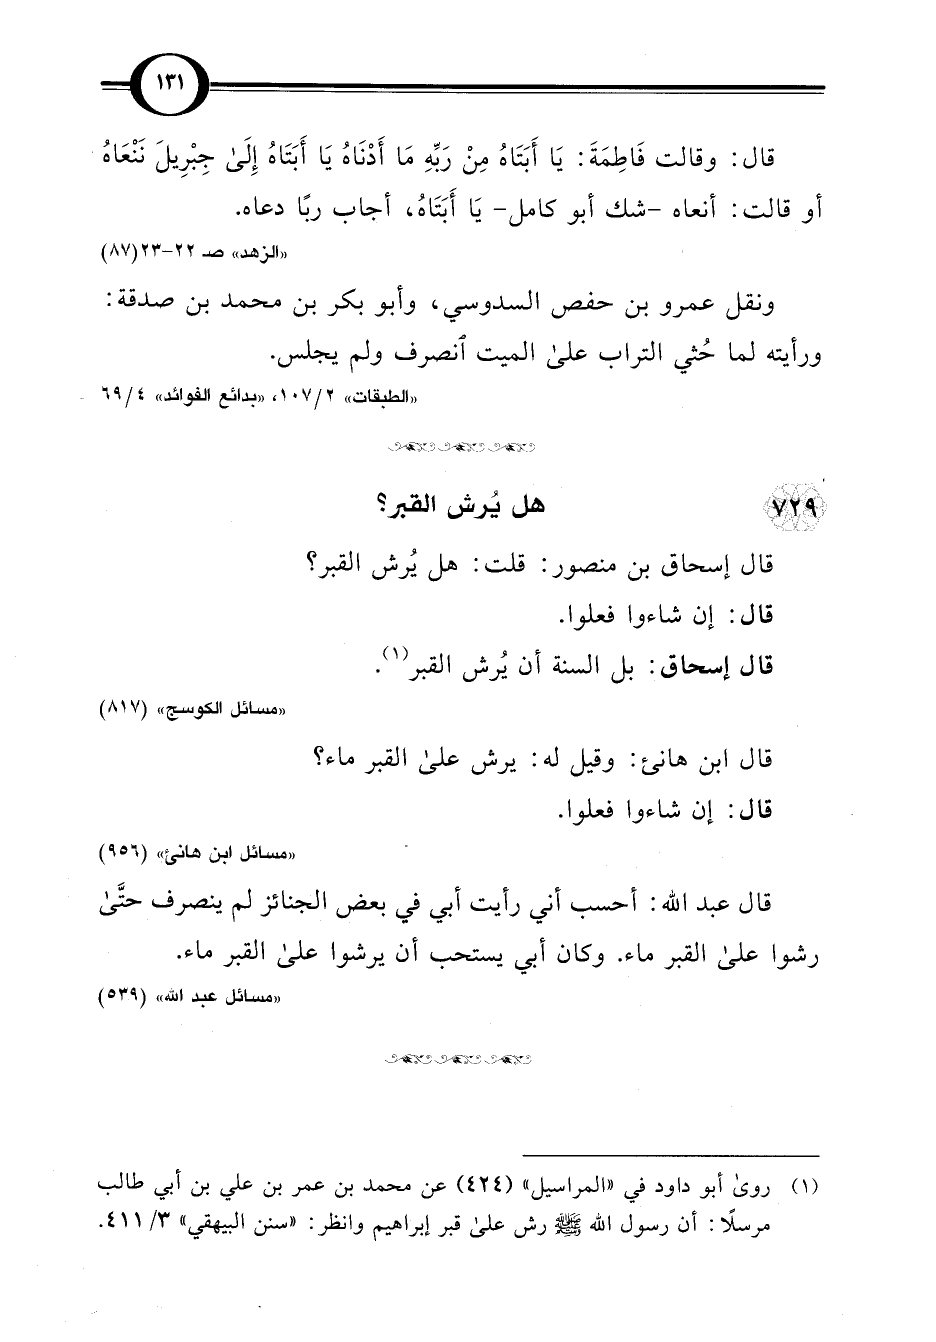 ١٣١
قال: وقالت فَاطِمَةَ: يَا أَبَتَاهُ مِنْ رَبِّهِ مَا أَدْنَاهُ يَا أَبَتَاهُ إِلَىٰ جِبْرِيلَ نَنْعَاهُ
أو قالت: أنعاه -شك أبو كامل- يَا أَبَتَاهُ، أجاب ربًا دعاه.
«الزهد» صـ ٢٢-٢٣ (٨٧)
ونقل عمرو بن حفص السدوسي، وأبو بكر بن محمد بن صدقة:
ورأيته لما حُثي التراب علىٰ الميت ٱنصرف ولم يجلس.
«الطبقات» ٢/ ١٠٧، «بدائع الفوائد» ٤/ ٦٩
٧٢٩ هل يُرش القبر؟
قال إسحاق بن منصور: قلت: هل يُرش القبر؟
قال: إن شاءوا فعلوا.
قال إسحاق: بل السنة أن يُرش القبر(١).
«مسائل الكوسج» (٨١٧)
قال ابن هانئ: وقيل له: يرش علىٰ القبر ماء؟
قال: إن شاءوا فعلوا.
«مسائل ابن هانئ» (٩٥٦)
قال عبد الله: أحسب أني رأيت أبي في بعض الجنائز لم ينصرف حتَّىٰ
رشوا علىٰ القبر ماء. وكان أبي يستحب أن يرشوا علىٰ القبر ماء.
«مسائل عبد الله» (٥٣٩)
(١) روىٰ أبو داود في «المراسيل» (٤٢٤) عن محمد بن عمر بن علي بن أبي طالب
مرسلًا: أن رسول الله ﷺ رش علىٰ قبر إبراهيم وانظر: «سنن البيهقي» ٣/ ٤١١.